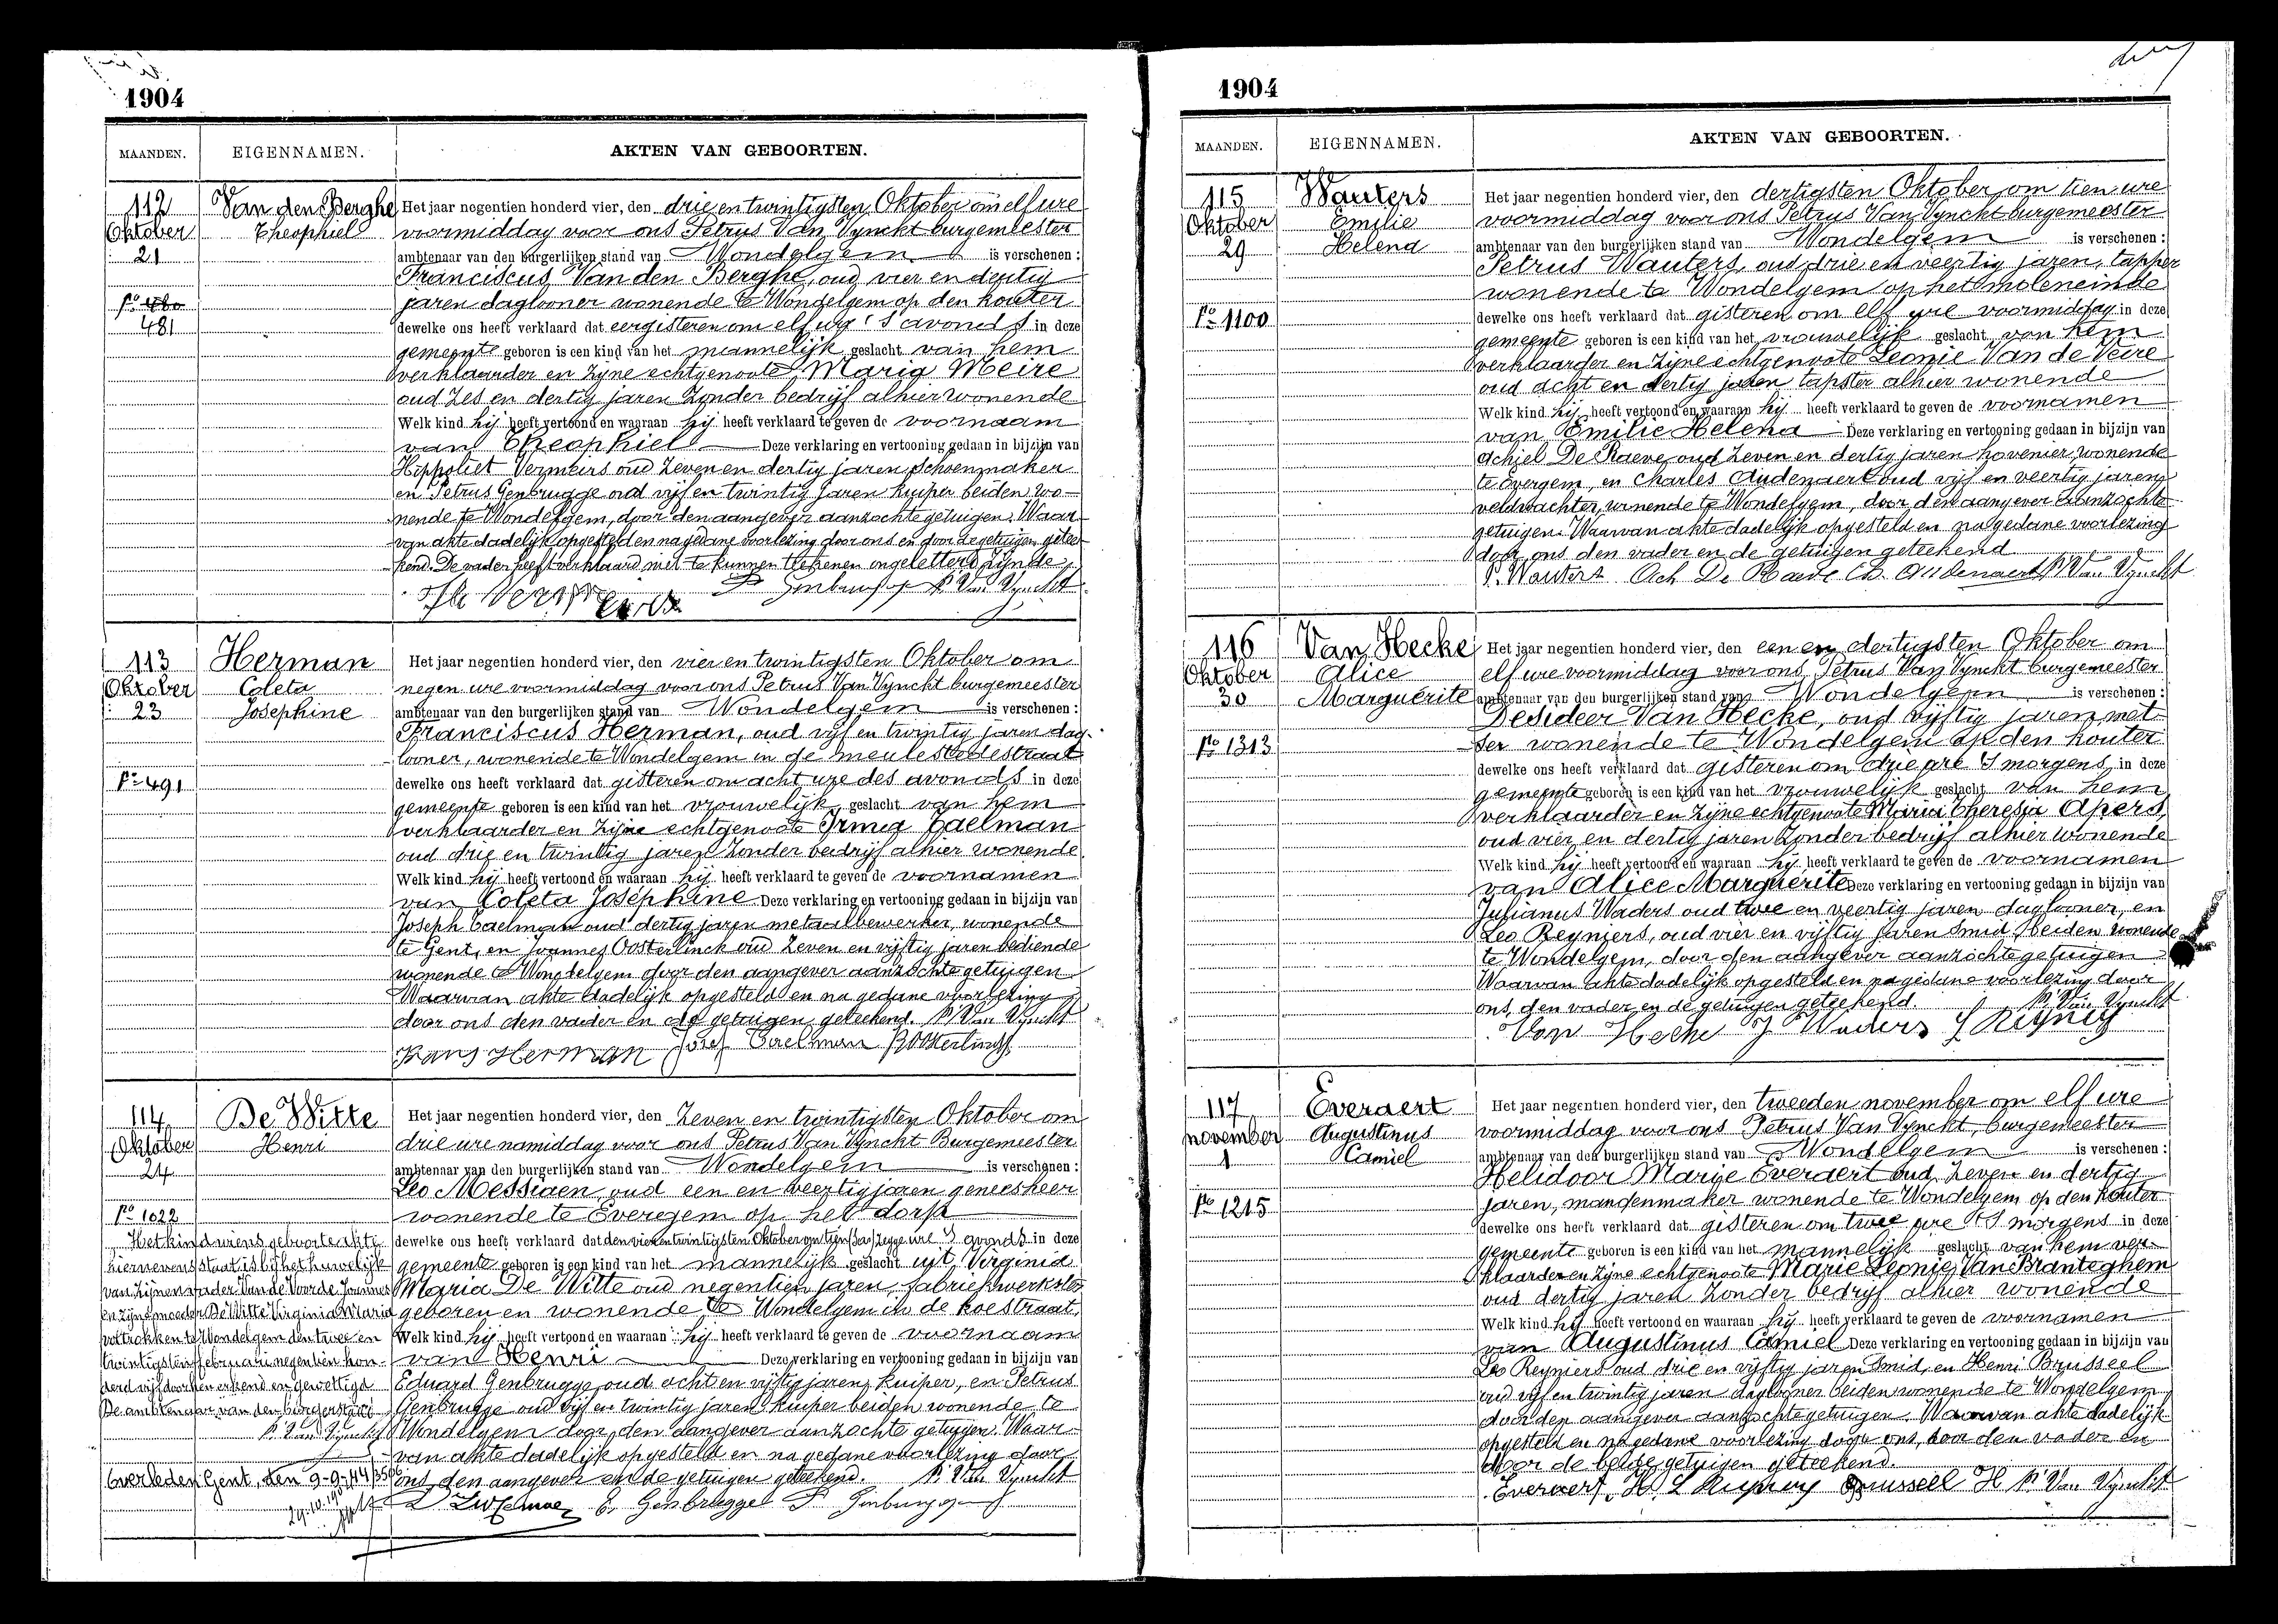 1904
MAANDEN.
EIGENNAMEN.
AKTEN VAN GEBOORTEN.
112
Oktober
21
No 480
481
Van den Berghe
Theophiel
Het jaar negentien honderd vier, den drie en twintigsten Oktober om elf ure
voormiddag voor ons Petrus Van Vynckt burgemeester
ambtenaar van den burgerlijken stand van Wondelgem is verschenen :
Franciscus Van den Berghe, oud vier en dertig
jaren daglooner wonende te Wondelgem op den kouter
dewelke ons heeft verklaard dat eergisteren om elf ure 's avonds in deze
gemeente geboren is een kind van het mannelijk geslacht van hem
verklaarder en zijne echtgenoote Marie Meire
oud zes en dertig jaren zonder bedrijf alhier wonende
Welk kind hij heeft vertoond en waaraan hij heeft verklaard te geven de voornaam
van Theophiel Deze verklaring en vertooning gedaan in bijzijn van
Hippoliet Vermeirs oud zeven en dertig jaren schoenmaker
en Petrus Genbrugge oud vijf en twintig jaren kuiper beiden wo-
nende te Wondelgem, door den aangever aanzochte getuigen. Waar-
van akte dadelijk opgesteld en na gedane voorlezing door ons en door de getuigen getee-
kend. De vader heeft verklaard niet te kunnen teekenen ongeletterd zijnde
P. Van Vynckt
113
Oktober
23
No 491
Herman
Coleta
Josephine
Het jaar negentien honderd vier, den vier en twintigsten Oktober om
negen ure voormiddag voor ons Petrus Van Vynckt burgemeester
ambtenaar van den burgerlijken stand van Wondelgem is verschenen :
Franciscus Herman, oud vijf en twintig jaren dag-
looner, wonende te Wondelgem in de meulestedestraat
dewelke ons heeft verklaard dat gisteren om acht ure des avonds in deze
gemeente geboren is een kind van het vrouwelijk geslacht van hem
verklaarder en zijne echtgenoote Irma Taelman
oud drie en twintig jaren zonder bedrijf alhier wonende
Welk kind hij heeft vertoond en waaraan hij heeft verklaard te geven de voornamen
van Coleta Josephine Deze verklaring en vertooning gedaan in bijzijn van
Joseph Taelman oud dertig jaren metaalbewerker, wonende
te Gent, en Joannes Oosterlinck oud zeven en vijftig jaren bediende
wonende te Wondelgem door den aangever aanzochte getuigen
Waarvan akte dadelijk opgesteld en na gedane voorlezing
door ons den vader en de getuigen geteekend. P. Van Vynckt
Frans Herman Josef Taelman J Oosterlinck
114
Oktober
24
No 1022
De Witte
Henri
Het kind wiens geboorte akte
hiernevens staat is bij het huwelijk
van zijnen vader Van de Voorde Joannes
en zijne moeder De Witte Virginia Maria
voltrokken te Wondelgem den twee en
twintigsten februari negentien hon-
derd vijf door hen erkend en gewettigd
De ambtenaar van den burgerstand
P. Van Vynckt
Overleden Gent, den 9-9-44
Het jaar negentien honderd vier, den zeven en twintigsten Oktober om
drie ure namiddag voor ons Petrus Van Vynckt Burgemeester
ambtenaar van den burgerlijken stand van Wondelgem is verschenen :
Leo Messiaen, oud een en veertig jaren geneesheer
wonende te Everegem op het dorp
dewelke ons heeft verklaard dat den vier en twintigsten Oktober om tien ure 's avonds in deze
gemeente geboren is een kind van het mannelijk geslacht uit Virginia
Maria De Witte oud negentien jaren, fabriekwerkster
geboren en wonende te Wondelgem in de koestraat,
Welk kind hij heeft vertoond en waaraan hij heeft verklaard te geven de voornaam
van Henri Deze verklaring en vertooning gedaan in bijzijn van
Eduard Genbrugge, oud acht en vijftig jaren, kuiper, en Petrus
Genbrugge oud vijf en twintig jaren kuiper beiden wonende te
Wondelgem door den aangever aanzochte getuigen. Waar-
van akte dadelijk opgesteld en na gedane voorlezing door
ons, den aangever en de getuigen geteekend. P. Van Vynckt
E. Genbrugge
1904
MAANDEN.
EIGENNAMEN.
AKTEN VAN GEBOORTEN.
115
Oktober
29
No 1100
Wauters
Emilie
Helena
Het jaar negentien honderd vier, den dertigsten Oktober om tien ure
voormiddag voor ons Petrus Van Vynckt burgemeester
ambtenaar van den burgerlijken stand van Wondelgem is verschenen :
Petrus Wauters, oud drie en veertig jaren, tapper
wonende te Wondelgem op het moleneinde
dewelke ons heeft verklaard dat gisteren om elf ure voormiddag in deze
gemeente geboren is een kind van het vrouwelijk geslacht van hem
verklaarder en zijne echtgenoote Leonie Van de Veire
oud acht en dertig jaren tapster alhier wonende
Welk kind hij heeft vertoond en waaraan hij heeft verklaard te geven de voornamen
van Emilie Helena Deze verklaring en vertooning gedaan in bijzijn van
Achiel De Raeve oud zeven en dertig jaren hovenier, wonende
te Evergem, en Charles Audenaert oud vijf en veertig jaren
veldwachter, wonende te Wondelgem, door den aangever aanzochte
getuigen. Waarvan akte dadelijk opgesteld en na gedane voorlezing
door ons den vader en de getuigen geteekend
P. Wauters Ach De Raeve Ch. Audenaert P. Van Vynckt
116
Oktober
30
No 1313
Van Hecke
Alice
Marguerite
Het jaar negentien honderd vier, den een en dertigsten Oktober om
elf ure voormiddag voor ons, Petrus Van Vynckt burgemeester
ambtenaar van den burgerlijken stand van Wondelgem is verschenen :
Desideer Van Hecke, oud vijftig jaren, met-
ser wonende te Wondelgem op den kouter
dewelke ons heeft verklaard dat gisteren om drie ure 's morgens in deze
gemeente geboren is een kind van het vrouwelijk geslacht van hem
verklaarder en zijne echtgenoote Maria Theresia Apers,
oud vier en dertig jaren zonder bedrijf alhier wonende
Welk kind hij heeft vertoond en waaraan hij heeft verklaard te geven de voornamen
van Alice Marguerite Deze verklaring en vertooning gedaan in bijzijn van
Julianus Waders oud twee en veertig jaren daglooner, en
Leo Reyniers, oud vier en vijftig jaren smid, beiden wonende
te Wondelgem, door den aangever aanzochte getuigen
Waarvan akte dadelijk opgesteld en na gedane voorlezing door
ons, den vader en de getuigen geteekend. P. Van Vynckt
Van Hecke J Waders
117
november
1
No 1215
Everaert
Augustinus
Camiel
Het jaar negentien honderd vier, den tweeden november om elf ure
voormiddag voor ons Petrus Van Vynckt, burgemeester
ambtenaar van den burgerlijken stand van Wondelgem is verschenen :
Helidoor Marije Everaert oud zeven en dertig
jaren, mandenmaker wonende te Wondelgem op den kouter
dewelke ons heeft verklaard dat gisteren om twee ure 's morgens in deze
gemeente geboren is een kind van het mannelijk geslacht van hem ver-
klaarder en zijne echtgenoote Marie Leonie Van Branteghem
oud dertig jaren zonder bedrijf alhier wonende
Welk kind hij heeft vertoond en waaraan hij heeft verklaard te geven de voornamen
van Augustinus Camiel Deze verklaring en vertooning gedaan in bijzijn van
Leo Reyniers oud drie en vijftig jaren smid, en Henri Brusseel
oud vijf en twintig jaren daglooner beiden wonende te Wondelgem
door den aangever aanzochte getuigen. Waarvan akte dadelijk
opgesteld en na gedane voorlezing door ons, door den vader en
door de beide getuigen geteekend.
Everaert H. Brusseel H P. Van Vynckt